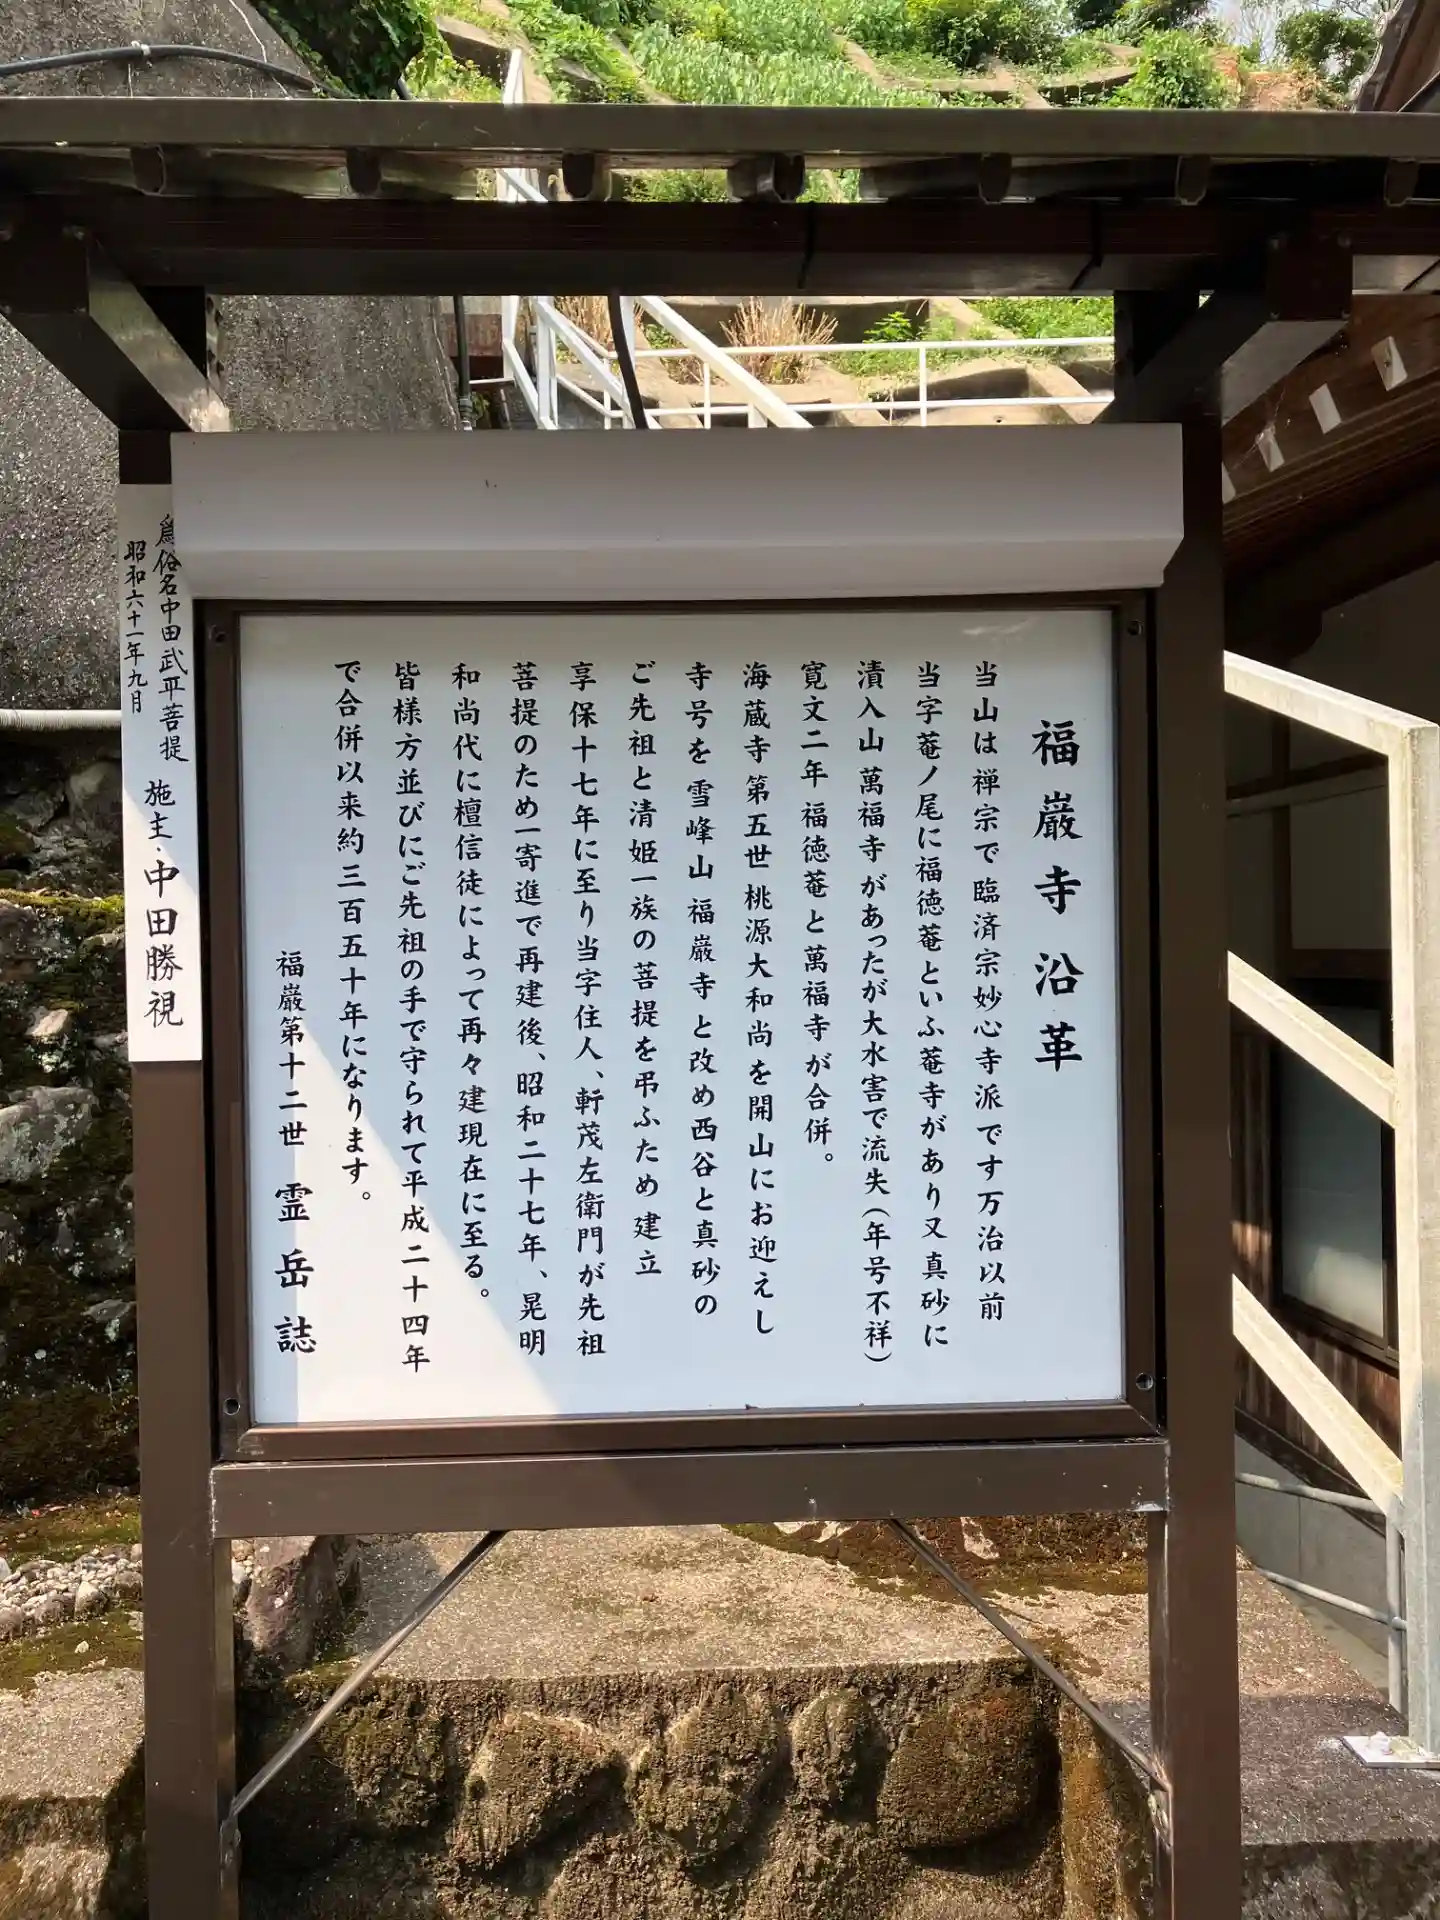 福巌寺沿革
当山は禅宗で臨済宗妙心寺派です万治以前
当字菴ノ尾に福徳菴といふ菴寺があり又真砂に
漬入山萬福寺があったが大水害で流失(年号不祥)
寛文二年福徳菴と萬福寺が合併。
海蔵寺第五世桃源大和尚を開山にお迎えし
寺号を雪峰山福巌寺と改め西谷と真砂の
ご先祖と清姫一族の菩提を弔ふため建立
享保十七年に至り当字住人、軒茂左衛門が先祖
菩提のため一寄進で再建後、昭和二十七年、晃明
和尚代に檀信徒によって再々建現在に至る。
皆様方並びにご先祖の手で守られて平成二十四年
で合併以来約三百五十年になります。
福巌第十二世 霊岳誌
為俗名中田武平菩提 施主・中田勝視
昭和六十一年九月